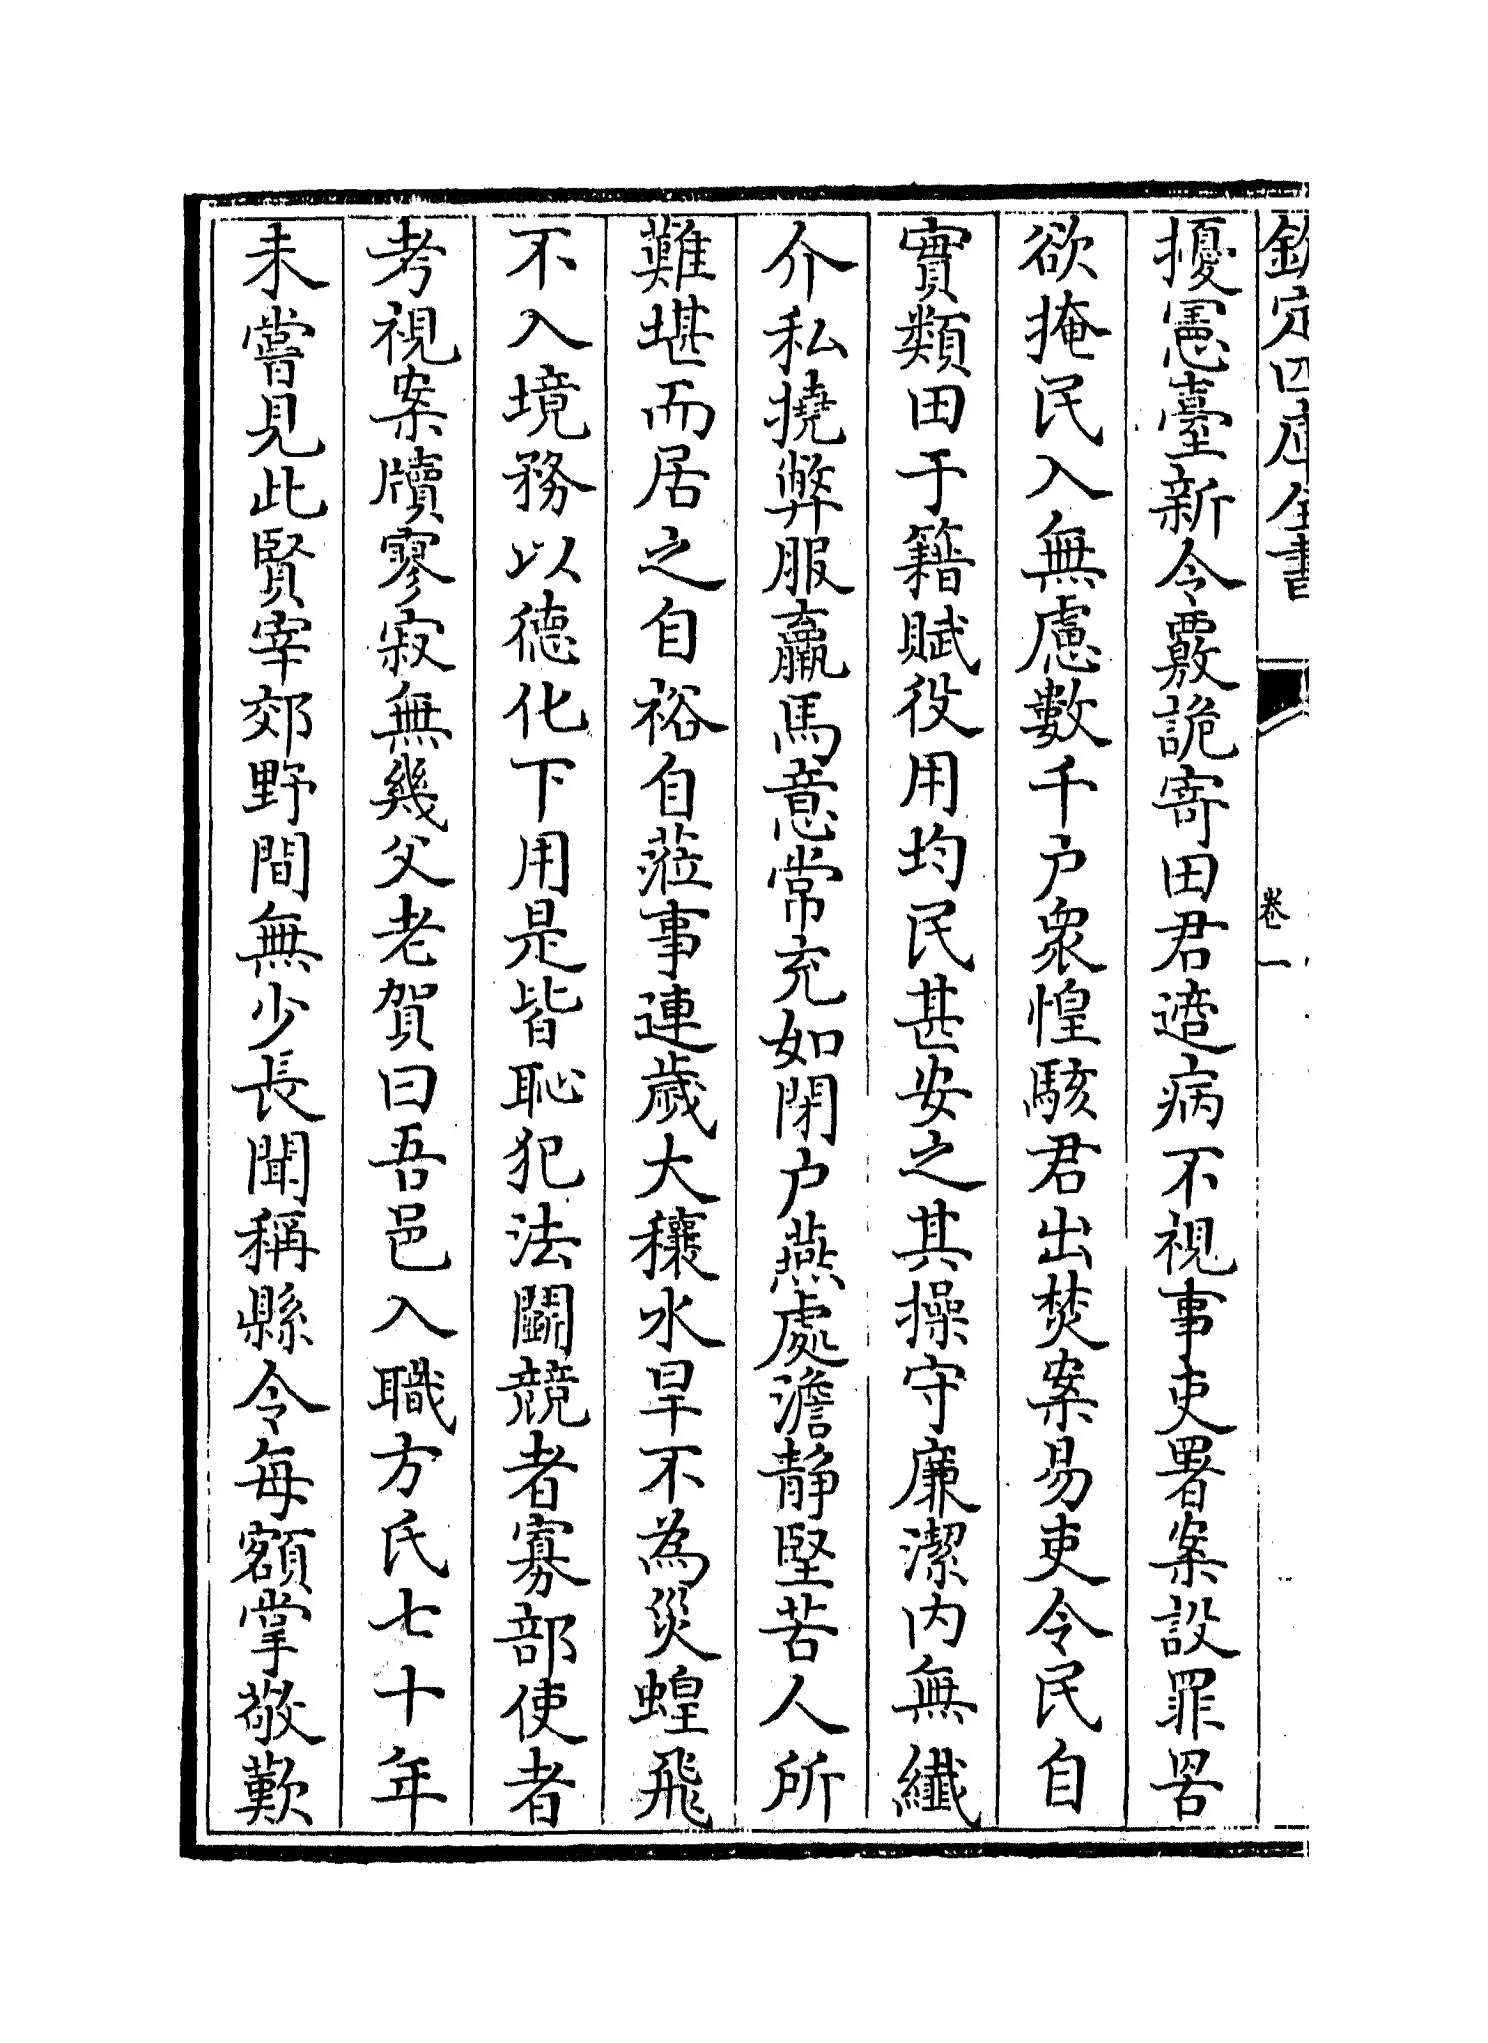 欽定四庫全書
卷一
擾憲臺新令覈詭寄田君適病不視事吏署案設罪罟
欲掩民入無慮數千户衆惶駭君出焚案易吏令民自
實類田于籍賦役用均民甚安之其操守廉潔内無纎
介私撓弊服羸馬意常充如閉户燕處澹静堅苦人所
難堪而居之自裕自蒞事連歲大穰水旱不為災蝗飛
不入境務以德化下用是皆恥犯法鬭競者寡部使者
考視案牘寥寂無幾父老賀曰吾邑入職方氏七十年
未嘗見此賢宰郊野間無少長聞稱縣令每額掌敬歎